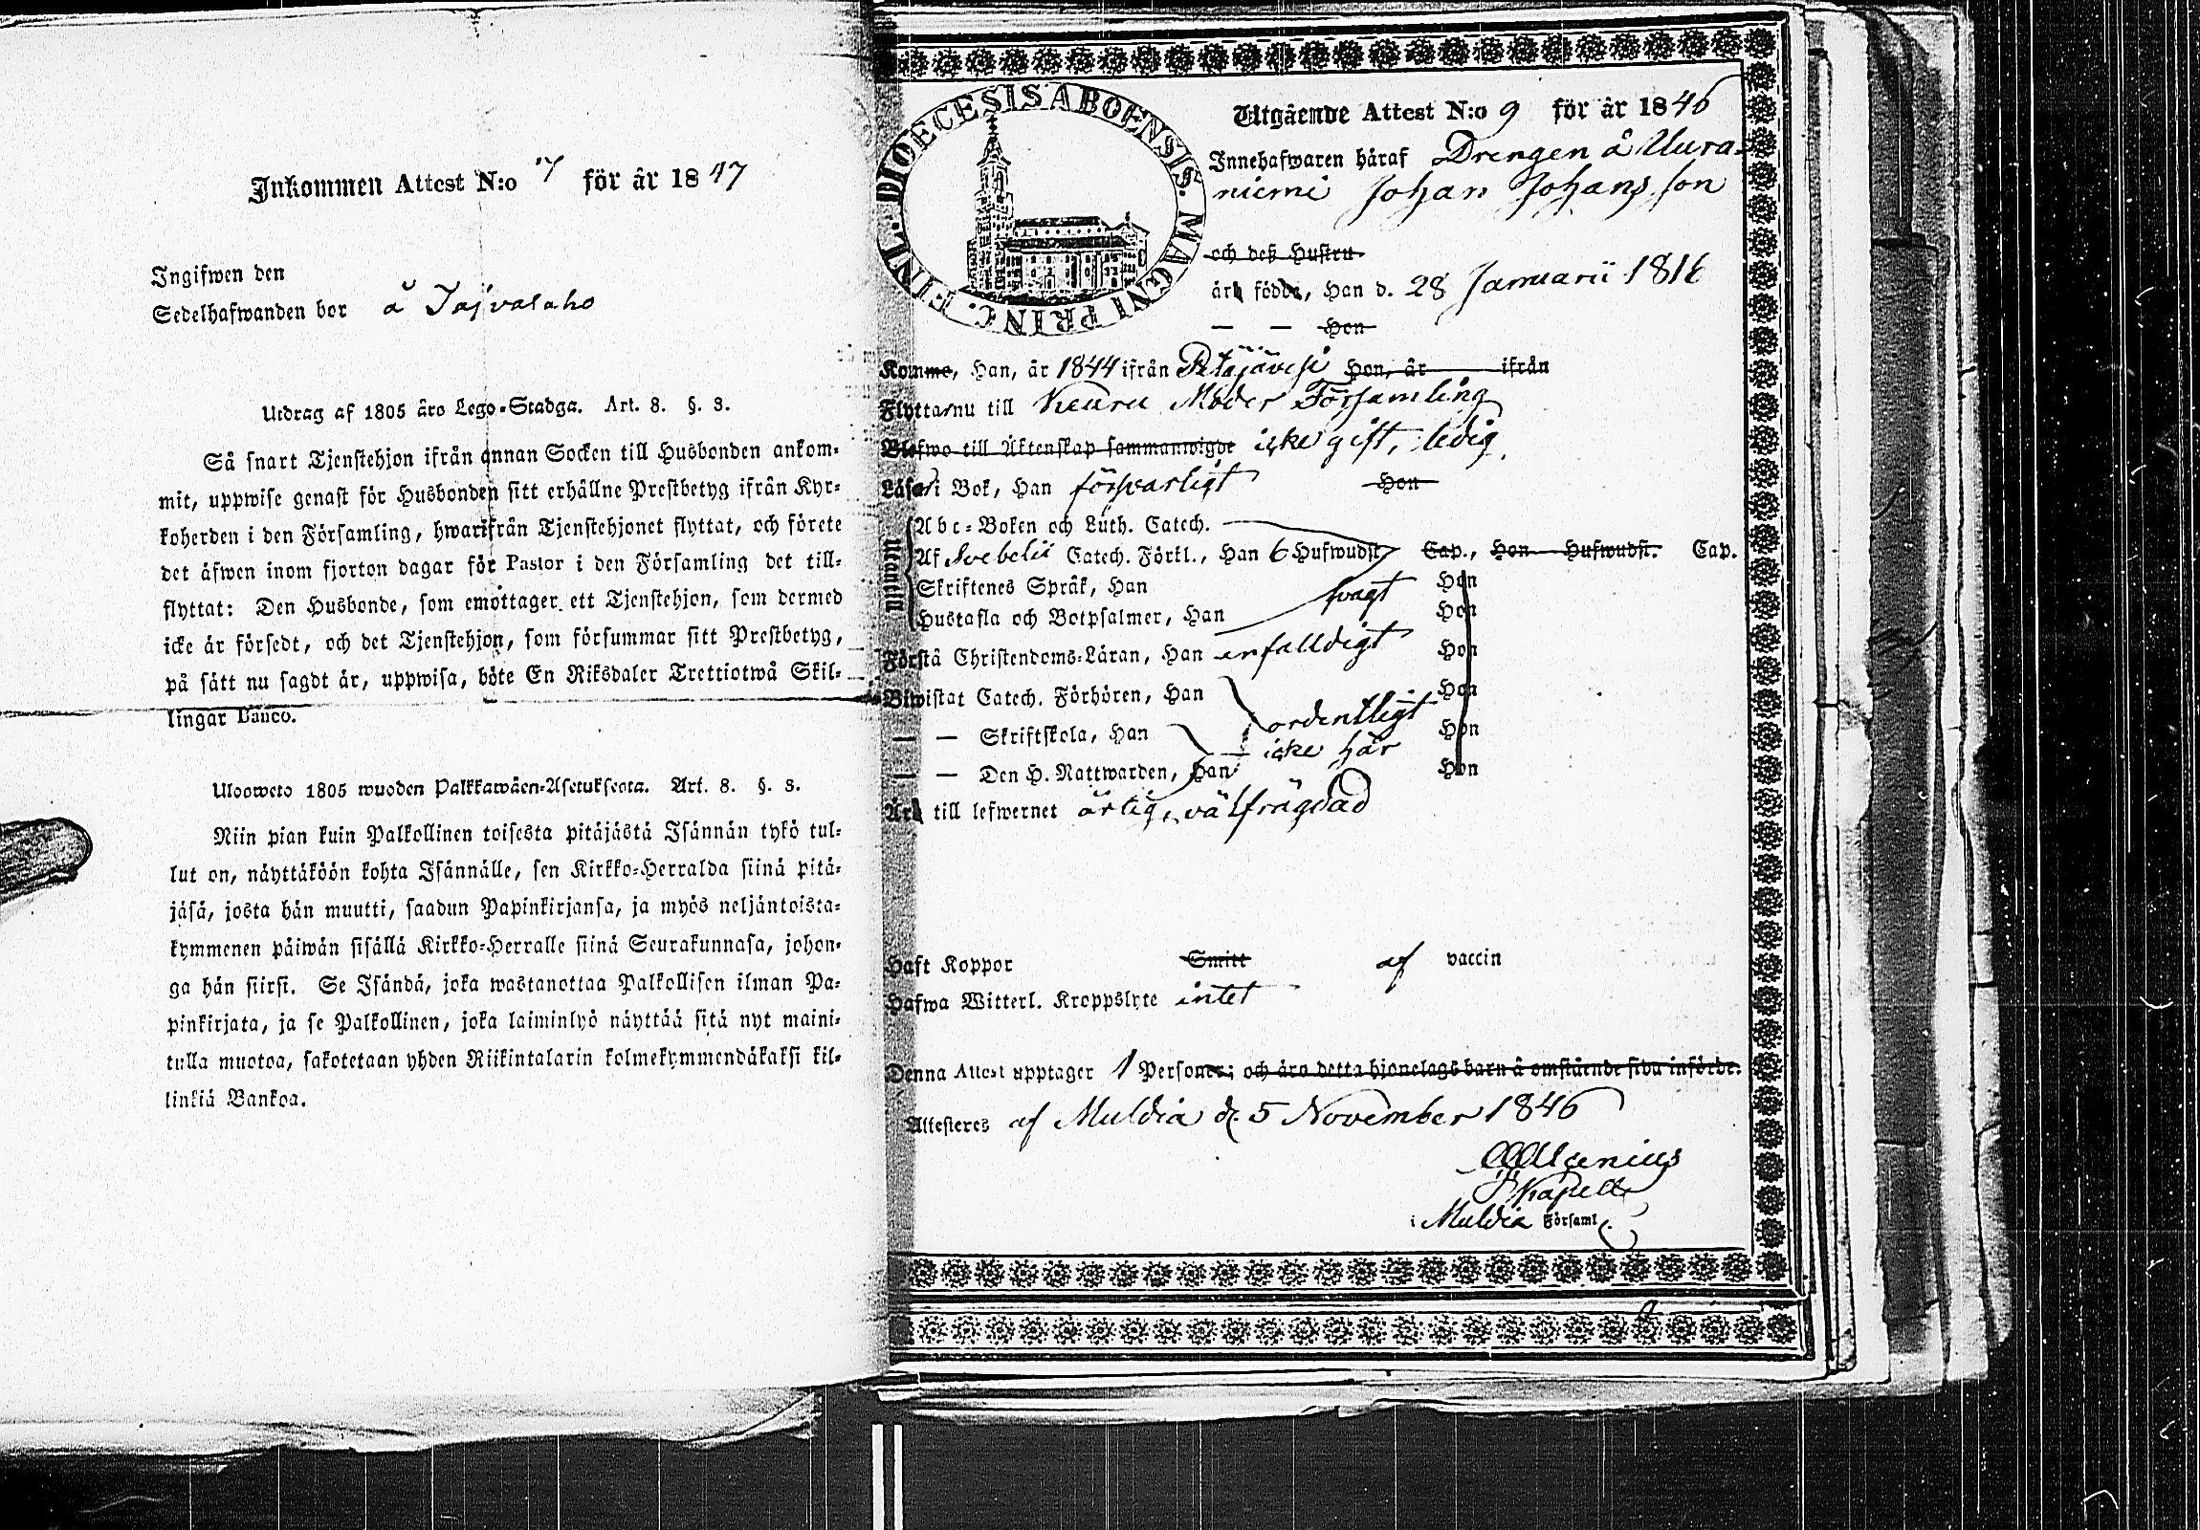 Inkommen Attest N:o 7 för år 1847
Ingifwen den
Sedelhafwanden bor å Jajvasaho
Utdrag af 1805 åro Lego-Stadga. Art. 8. §. 3.
Så snart Tjenstehjon ifrån annan Socken till Husbonden ankom-
mit, uppwise genast för Husbonden sitt erhållne Prestbetyg ifrån Kyr-
koherden i den Församling, hwarifrån Tjenstehjonet flyttat, och förete
det äfwen inom fjorton dagar för Pastor i den Församling det till-
flyttat: Den Husbonde, som emottager ett Tjenstehjon, som dermed
icke är försedt, och det Tjenstehjon, som försummar sitt Prestbetyg,
på sätt nu sagdt är, uppwisa, böte En Riksdaler Trettiotwå Skil-
lingar Banco.
Ulosweto 1805 wuoden Palkkawäen-Asetuksesta. Art. 8. §. 3.
Niin pian kuin Palkollinen toisesta pitäjästä Isännän tykö tul-
lut on, näyttäköön kohta Isännälle, sen Kirkko-Herralda siinä pitä-
jäsä, josta hän muutti, saadun Papinkirjansa, ja myös neljäntoista-
kymmenen päiwän sisällä Kirkko-Herralle siinä Seurakunnasa, johon-
ga hän siirsi. Se Isändä, joka wastanottaa Palkollisen ilman Pa-
pinkirjata, ja se Palkollinen, joka laiminlyö näyttää sitä nyt maini-
tulla muotoa, sakotetaan yhden Riikintalarin kolmekymmendäkaksi kil-
linkiä Bankoa.
FINL. DIOECESIS ABOENSIS. MAGNI PRINC.
Utgående Attest N:o 9 för år 1846
Innehafwaren häraf Drengen å Uura-
niemi Johan Johansson
och deß Hustru
är födde, Han d. 28 Januarii 1816
— — Hon
Komne, Han, år 1844 ifrån Petäjävesi Hon, år ifrån
Flyttar nu till Keuru Moder Församling
Blefwo till Äktenskap sammanwigde icke gift, ledig.
Läser i Bok, Han försvarligt Hon
Utantill
Abc-Boken och Luth. Catech.
Af Svebelii Catech. Förkl., Han 6 Hufwudst. Cap., Hon Hufwudst. Cap.
Skriftenes Språk, Han svagt Hon
Hustafla och Botpsalmer, Han Hon
Förstå Christendoms-Läran, Han enfalldigt Hon
Biwistat Catech. Förhören, Han ordentligt Hon
— — Skriftskola, Han icke här Hon
— — Den H. Nattwarden, Han Hon
Är till lefwernet ärlig, välfrägdad
Haft Koppor Smitt af vaccin
Hafwa Witterl. Kroppslyte intet
Denna Attest upptager 1 Personer; och äro detta hjonelags barn å omstående sida införde.
Attesteres af Muldia d. 5 November 1846
i Muldia Församl.